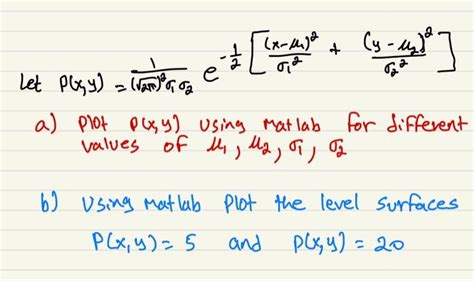 Let P(x,y) = 1/((√2π)² σ₁ σ₂) e^{-1/2 [ (x-μ₁)²/σ₁² + (y-μ₂)²/σ₂² ]}
a) Plot P(x,y) using Matlab for different
values of μ₁, μ₂, σ₁, σ₂
b) Using Matlab Plot the level surfaces
P(x,y) = 5 and P(x,y) = 20